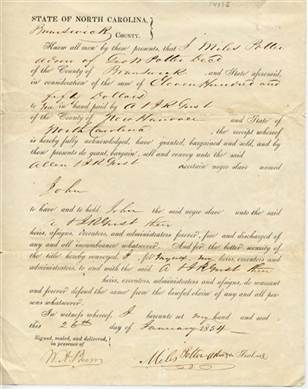 STATE OF NORTH CAROLINA,
Brunswick COUNTY.
Know all men by these presents, that I Miles Potter
admr of Geo W Potter decd
of the County of Brunswick and State aforesaid,
in consideration of the sum of Eleven Hundred and
fifty Dollars
to me in hand paid by A & J R Grist
of the County of New Hanover and State of
North Carolina, the receipt whereof
is hereby fully acknowledged, have granted, bargained and sold, and by
these presents do grant, bargain, sell and convey unto the said
Allen & J R Grist a certain negro slave named
John
to have and to hold John the said negro slave unto the said
A & J R Grist their
heirs, assigns, executors and administrators forever, free and discharged of
any and all incumbrance whatsoever. And for the better security of
the title hereby conveyed, I for myself my heirs, executors and
administrators, to and with the said A & J R Grist their
heirs, executors, administrators and assigns, do warrant
and forever defend the same from the lawful claim of any and all per-
sons whatsoever.
In witness whereof, I hereunto set my hand and seal
this 26th day of January 1854
Signed, sealed, and delivered,
in presence of
Miles Potter